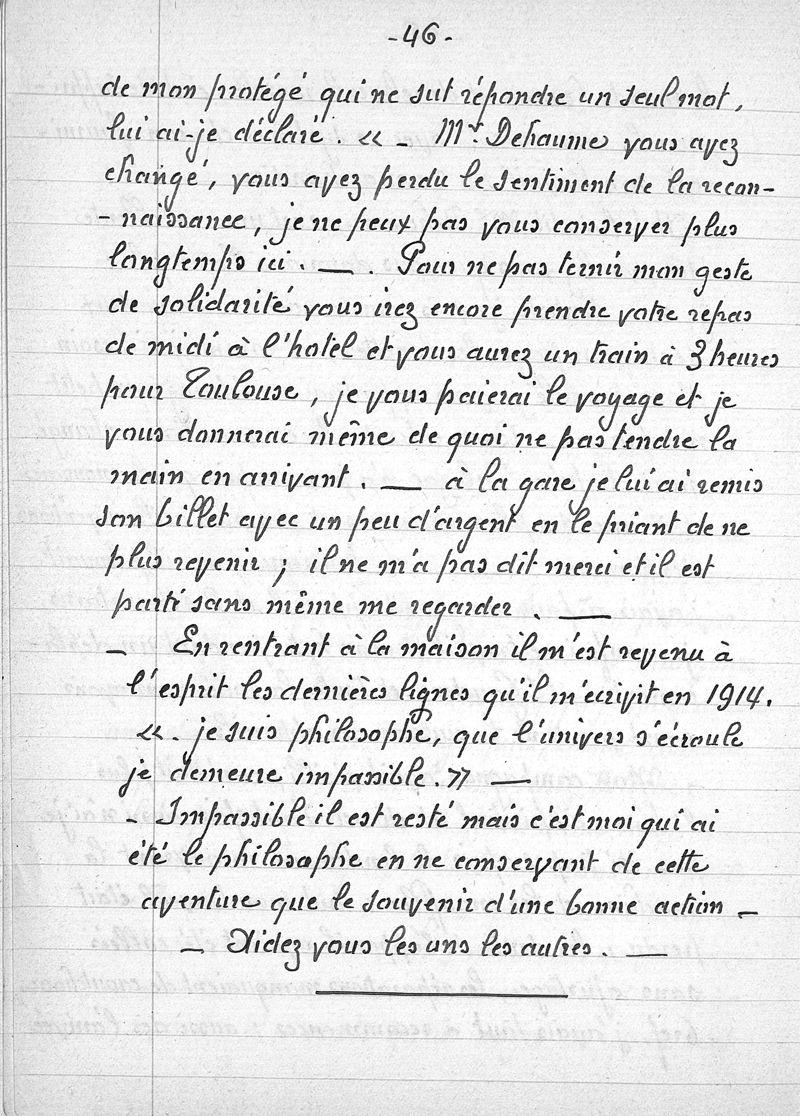 -46-
de mon protégé qui ne sut répondre un seul mot,
lui ai-je déclaré. « - Mr Dehaume vous avez
changé, vous avez perdu le sentiment de la recon-
- naissance, je ne peux pas vous conserver plus
longtemps ici. — . Pour ne pas ternir mon geste
de solidarité vous irez encore prendre votre repas
de midi à l'hotel et vous aurez un train à 3 heures
pour Toulouse, je vous paierai le voyage et je
vous donnerai même de quoi ne pas tendre la
main en arrivant. — à la gare je lui ai remis
son billet avec un peu d'argent en le priant de ne
plus revenir ; il ne m'a pas dit merci et il est
parti sans même me regarder. —
- En rentrant à la maison il m'est revenu à
l'esprit les dernières lignes qu'il m'ecrivit en 1914.
« . je suis philosophe, que l'univers s'écroule
je demeure impassible. » —
- Impassible il est resté mais c'est moi qui ai
été le philosophe en ne conservant de cette
aventure que le souvenir d'une bonne action -
- Aidez vous les uns les autres. —